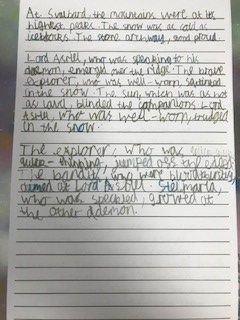 At Svalbard, the mountain were at its
highest peaks. The snow was as cold as
icebergs. The stone archway, stood proud.
Lord Asriel, who was speaking to his
daemon, emerged over the ridge. The brave
explorer, who was well-worn, squinted
in the snow. The sun, which was as hot
as lava, blinded the companions. Lord
Asriel, who was well-worn, trudged
in the snow.
The explorer, who was
quick-thinking, jumped the edge.
The bandits, who were bloodthirsty
at Lord Asriel. Stelmaria,
who was speckled, growled at
the other daemon.